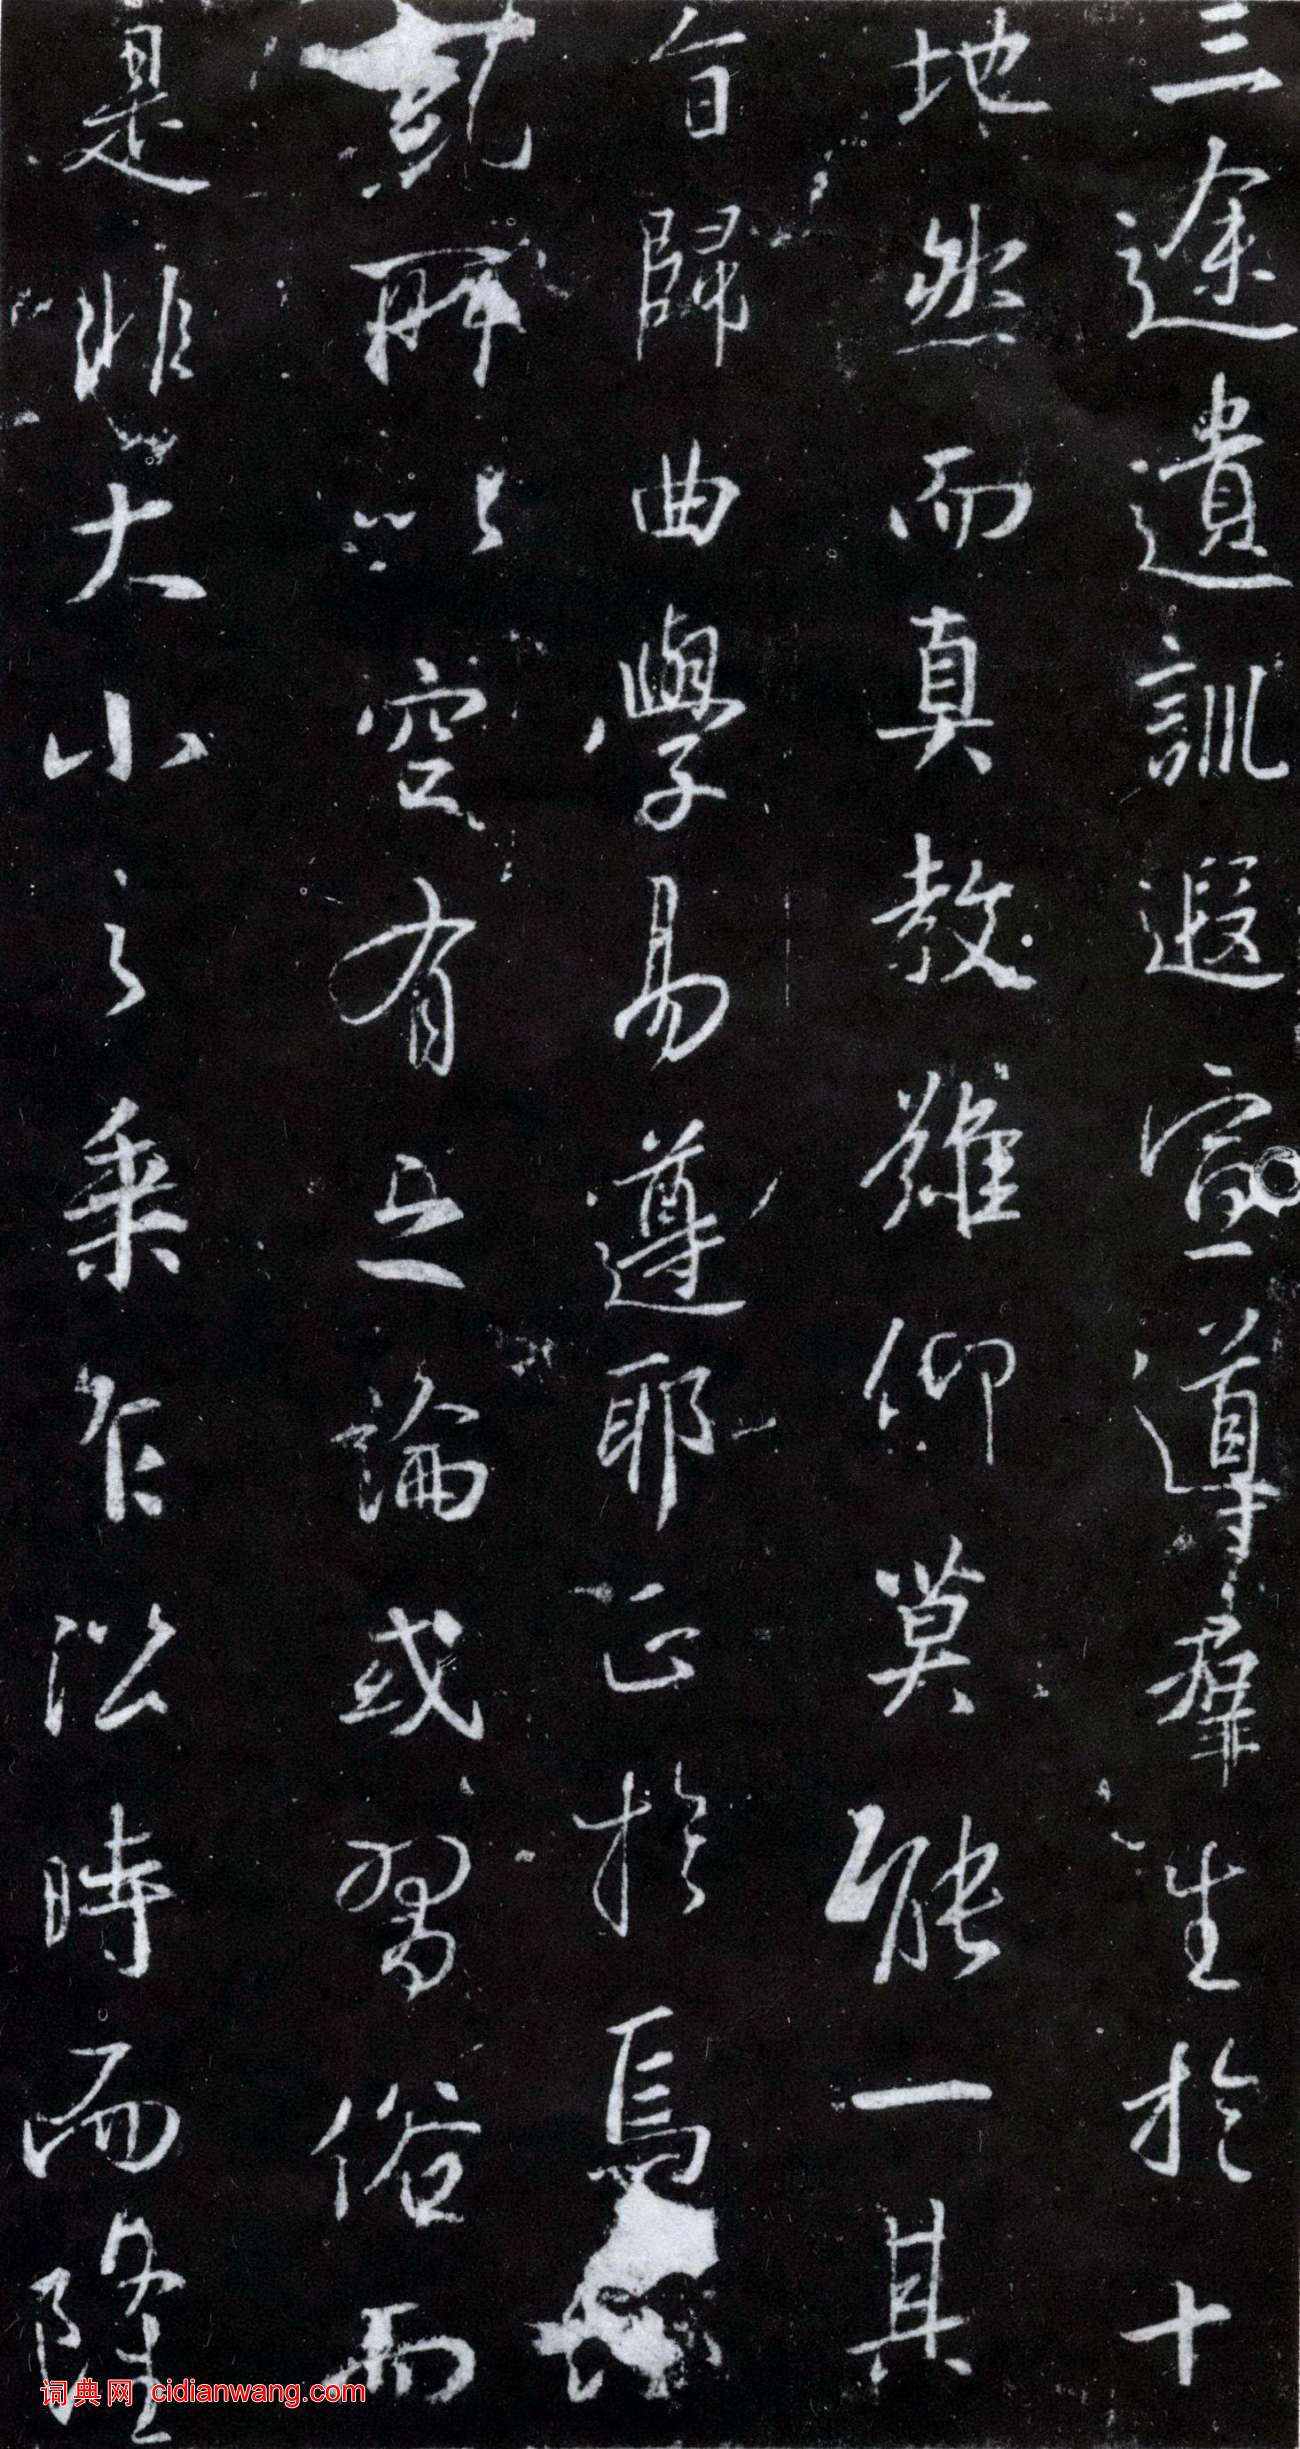 三途遺訓遐宣導群生於十
地然而真教難仰莫能一其
旨歸曲學易遵耶正於焉
所以空有之論或習俗而
是非大小之乗乍沿時而隆
词典网 cidianwang.com